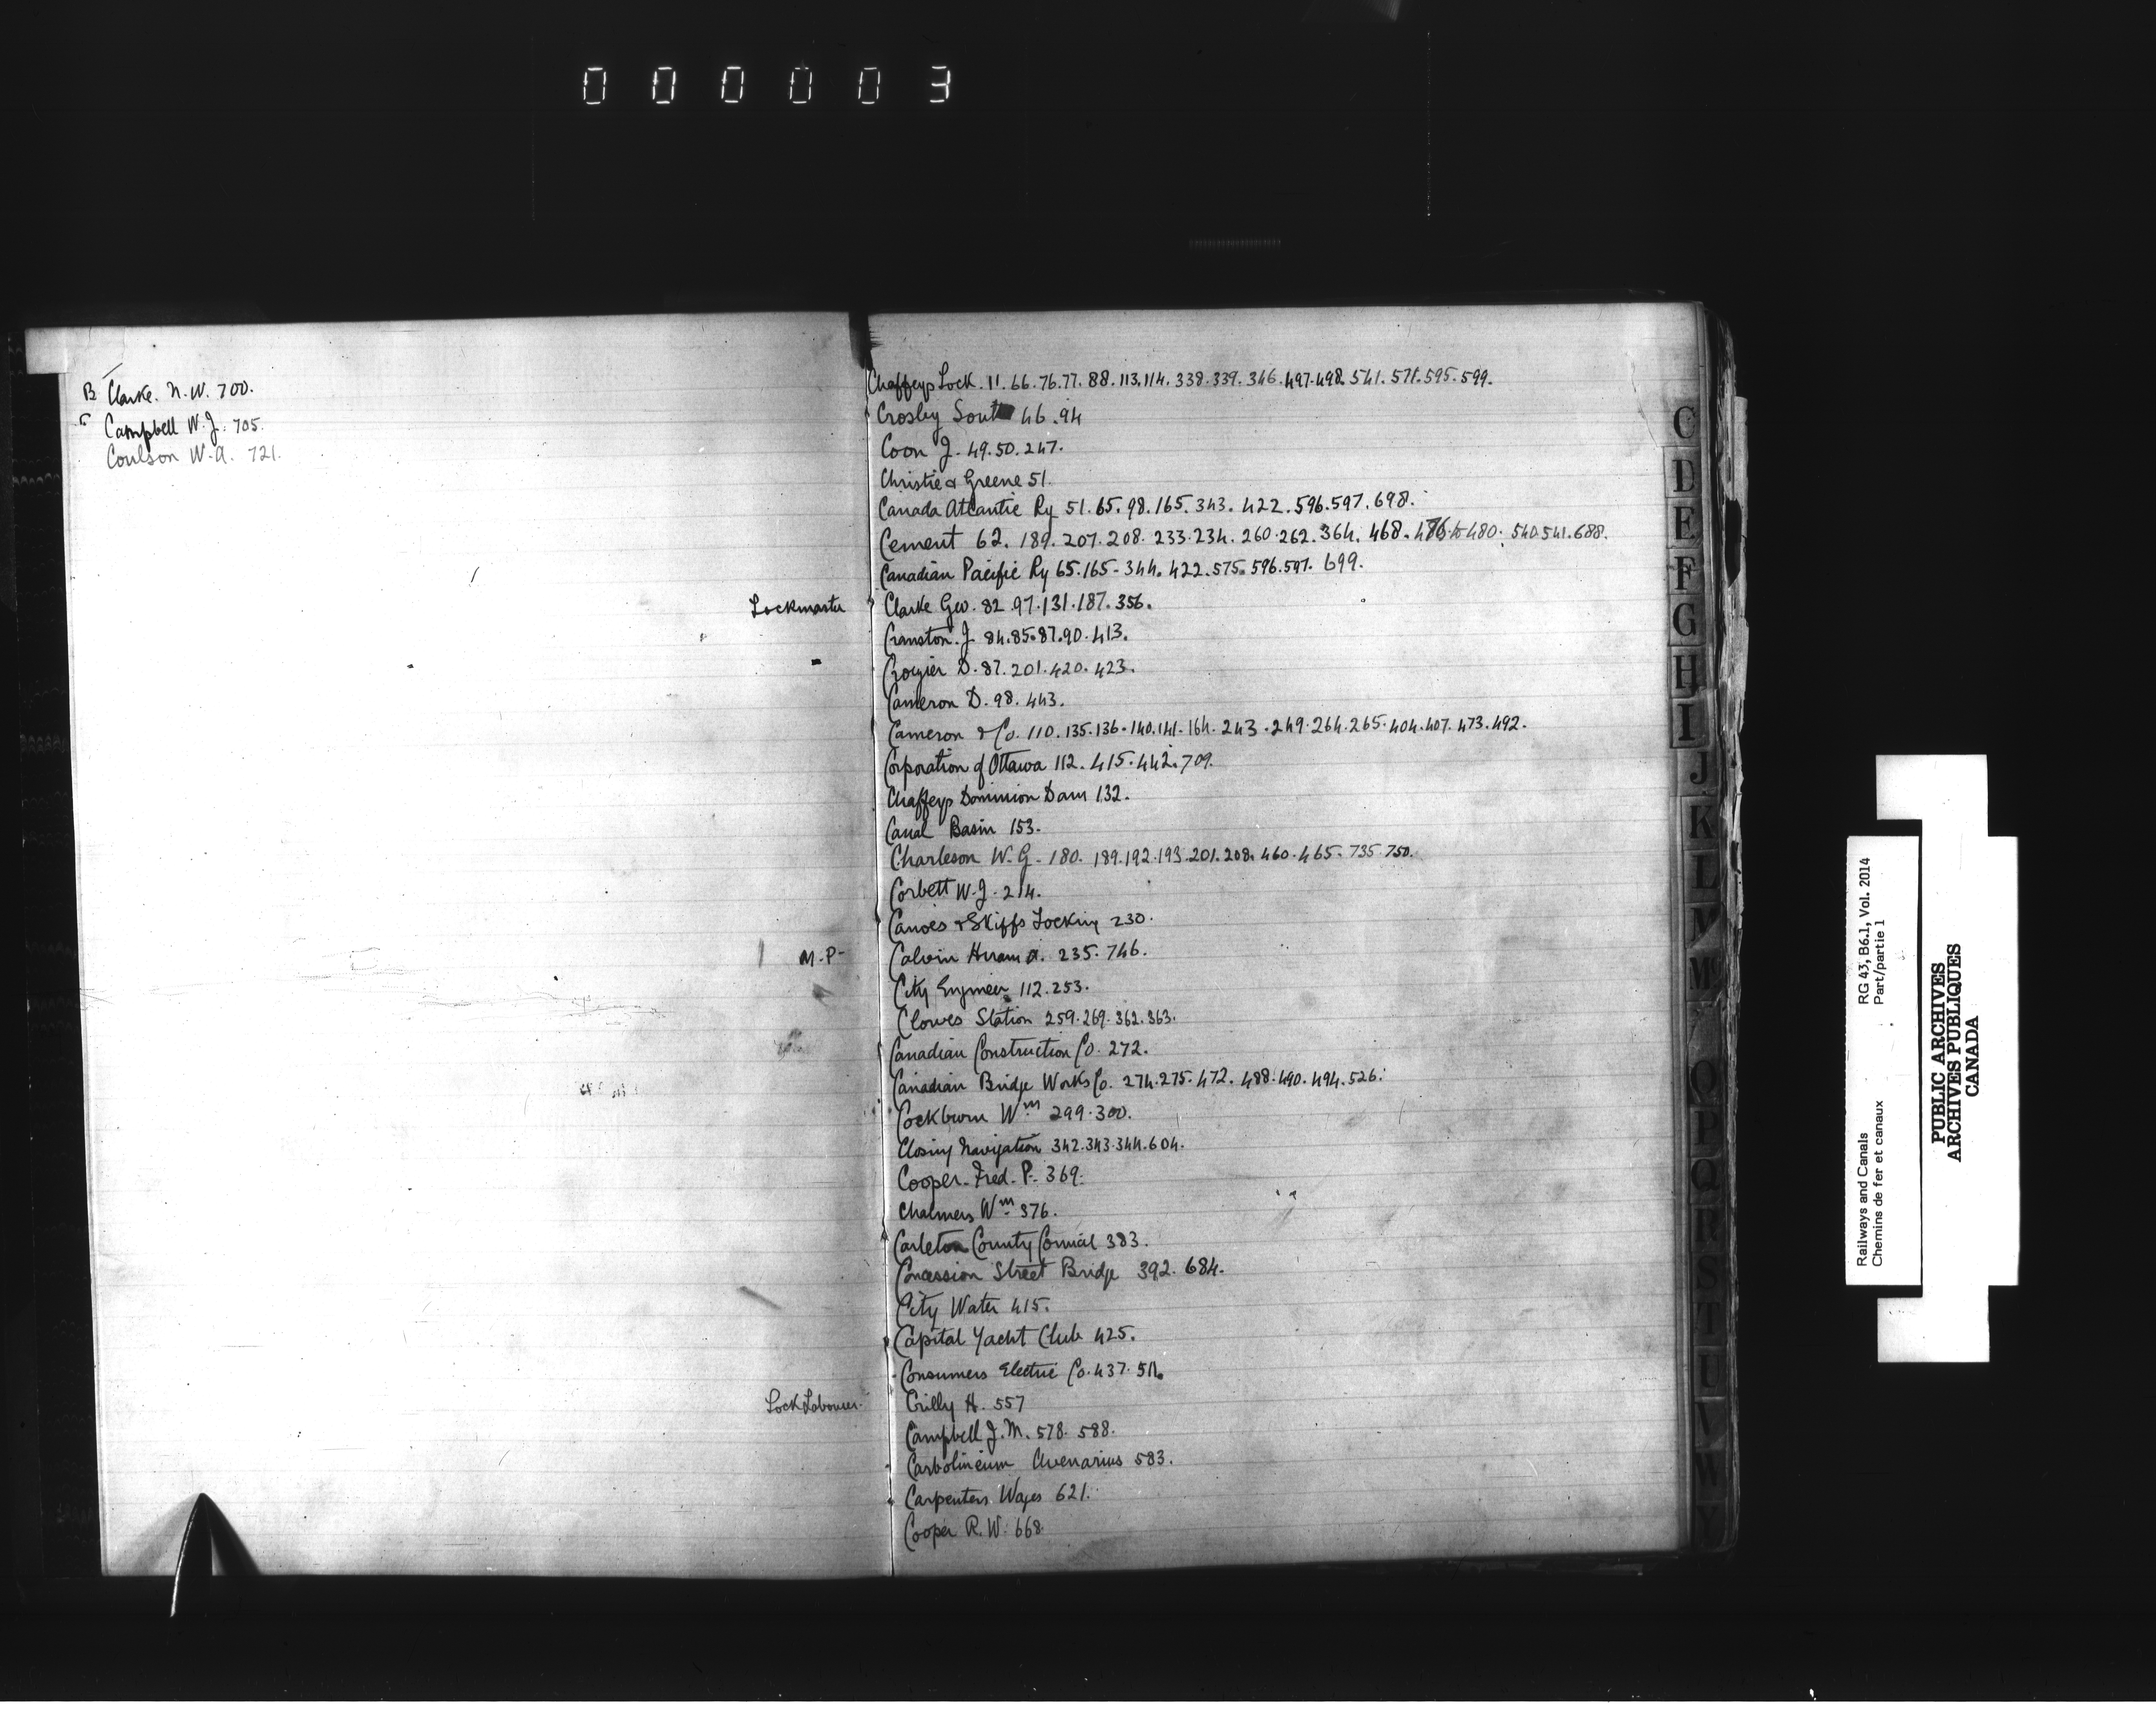 000003
B Clarke. N. W. 700.
C Campbell W. J. 705.
Coulson W. A. 721.
Chaffeys Lock. 11. 66. 76. 77. 88. 113. 114. 338. 339. 346. 497. 498. 541. 571. 595. 599.
Crosby South 46. 94
Coon J. 49. 50. 247.
Christie & Greene 51.
Canada Atlantic Ry 51. 65. 98. 165. 343. 422. 596. 597. 698.
Cement 62. 189. 207. 208. 233. 234. 260. 262. 364. 468. 476 to 480. 540. 541. 688.
Canadian Pacific Ry 65. 165. 344. 422. 575. 596. 597. 699.
Lockmaster Clarke Geo. 82. 97. 131. 187. 356.
Cranston J. 84. 85. 87. 90. 413.
Crozier D. 87. 201. 420. 423.
Cameron D. 98. 443.
Cameron & Co. 110. 135. 136. 140. 141. 164. 243. 249. 264. 265. 404. 407. 473. 492.
Corporation of Ottawa 112. 415. 442. 709.
Chaffeys Dominion Dam 132.
Canal Basin 153.
Charleson W. G. 180. 189. 192. 193. 201. 208. 460. 465. 735. 750.
Corbett W. J. 214.
Canoes & Skiffs Locking 230.
M. P. Calvin Hiram A. 235. 746.
City Engineer 112. 253.
Clowes Station 259. 269. 362. 363.
Canadian Construction Co. 272.
Canadian Bridge Works Co. 274. 275. 472. 488. 490. 494. 526.
Cockburn Wm 299. 300.
Closing Navigation 342. 343. 344. 604.
Cooper. Fred. P. 369.
Chalmers Wm 376.
Carleton County Council 383.
Concession Street Bridge 392. 684.
City Water 415.
Capital Yacht Club 425.
Consumers Electric Co. 437. 511.
Lock Labourer. Crilly H. 557
Campbell J. M. 578. 588.
Carbolineum Avenarius 583.
Carpenters Wages 621.
Cooper R. W. 668
C
D
E
F
G
H
I
J
K
L
M
Mc
O
P
Q
R
S
T
U
V
W
Railways and Canals RG 43, B6.1, Vol. 2014
Chemins de fer et canaux Part/partie 1
PUBLIC ARCHIVES
ARCHIVES PUBLIQUES
CANADA